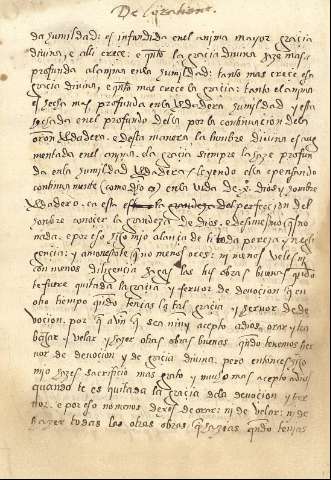 De la ratione.
da humildad: es infundida en el anima mayor gracia
divina, e alli crece: e qnto la gracia divina haze mas
profunda al anima en la humildad: tanto mas crece esa
gracia divina, e qnto mas crece la gracia: tanto el anima
es hecha mas profunda en la verdadera humildad y esta
en el profundo della por la continuacion de la
oron verdadera. e desta manera la lumbre divina es aug
mentada en el anima. e la gracia siempre la haze profun
da en la humildad verdadera / leyendo ella e pensando
continuamente (como dixo) en la vida de x. dios y hombre
verdadero. ca esta es la grandeza del perfection del
honbre conocer la grandeza de dios. e de si mesmo q no es
nada. e por eso hijo mio alança de ti toda pereza y negli
gencia: y amonestote q no menos ores: ni menos veles ni
con menos diligencia hagas las obras buenas qndo
te fuere quitada la gracia y fervor de devocion, q en
otro tiempo qndo tenias la tal gracia y fervor de de
vocion. por q avn q sea muy acepto a dios, orar y tra
bajar y velar y hazer otras obras buenas qndo tenemos fer
vor de devocion y de gracia divina. pero entonces hijo
mio hazes sacrificio mas grato y mucho mas acepto a dios
quando te es quitada la gracia de la devocion y fer
vor. e por eso no menos deves de orar: ni de velar: ni de
hazer todas las otras obras q hazias qndo tenias